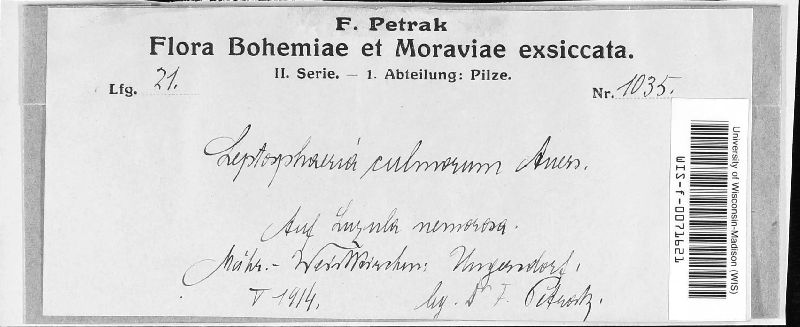 F. Petrak
Flora Bohemiae et Moraviae exsiccata.
II. Serie. — 1. Abteilung: Pilze.
Lfg. 21.
Nr. 1035.
Leptosphaeria culmorum Auers.
Auf Luzula nemorosa.
Mähr.-Weisskirchen: Ungersdorf.
V 1914. lg. Dr F. Petrak.
University of Wisconsin-Madison (WIS)
WIS-f-0071621